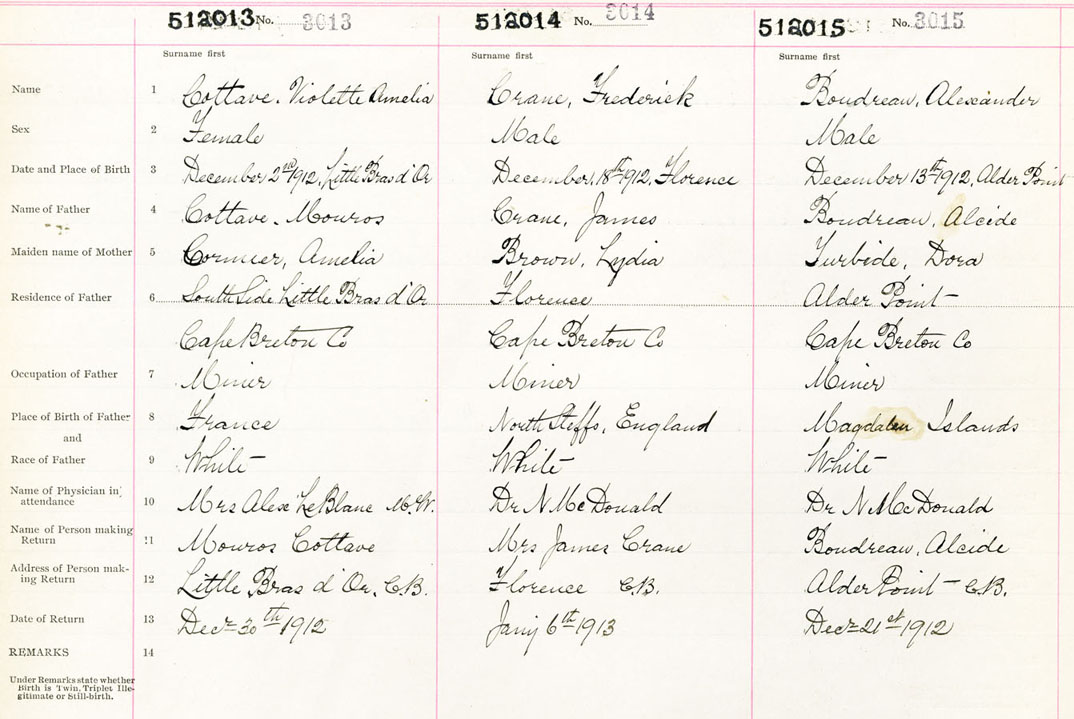 512013 No. 3013 512014 No. 3014 512015 No. 3015
Surname first Surname first Surname first
Name 1 Cottave, Violette Amelia Crane, Frederick Boudreau, Alexander
Sex 2 Female Male Male
Date and Place of Birth 3 December 2nd 1912, Little Bras d'Or December, 18th 1912, Florence December 13th 1912, Alder Point
Name of Father 4 Cottave, Mouros Crane, James Boudreau, Alcide
Maiden name of Mother 5 Cormier, Amelia Brown, Lydia Turbide, Dora
Residence of Father 6 South Side Little Bras d'Or Florence Alder Point
Cape Breton Co Cape Breton Co Cape Breton Co
Occupation of Father 7 Miner Miner Miner
Place of Birth of Father 8 France North Steffs, England Magdalen Islands
and
Race of Father 9 White White White
Name of Physician in
attendance 10 Mrs Alex LeBlanc M.W. Dr N McDonald Dr N McDonald
Name of Person making
Return 11 Mouros Cottave Mrs James Crane Boudreau, Alcide
Address of Person mak-
ing Return 12 Little Bras d'Or, C.B. Florence C.B. Alder Point - C.B.
Date of Return 13 Decr 30th 1912 Jany 6th 1913 Decr 21st 1912
REMARKS 14
Under Remarks state whether
Birth is Twin, Triplet Ille-
gitimate or Still-birth.